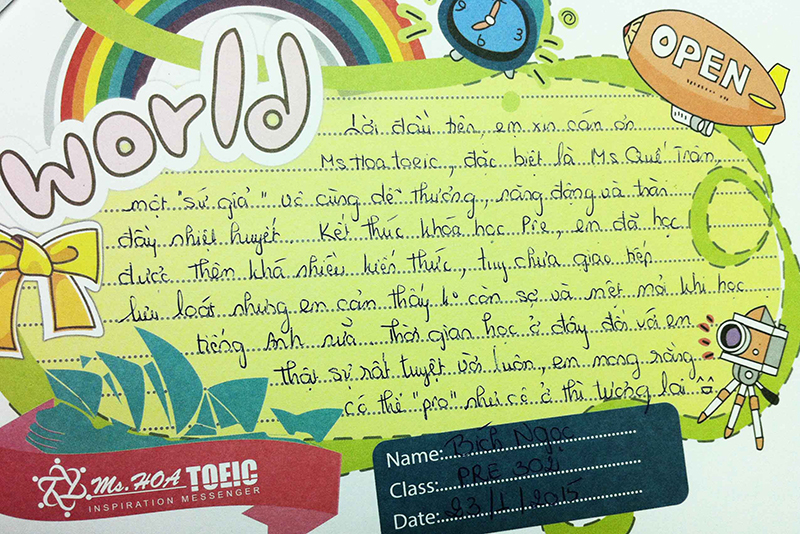 world
OPEN
Lời đầu tiên, em xin cảm ơn
Ms Hoa toeic, đặc biệt là Ms Quế Trân,
một "sứ giả" vô cùng dễ thương, năng động và tràn
đầy nhiệt huyết. Kết thúc khóa học Pre, em đã học
được thêm khá nhiều kiến thức, tuy chưa giao tiếp
lưu loát nhưng em cảm thấy ko còn sợ và mệt mỏi khi học
tiếng Anh nữa. Thời gian học ở đây đối với em
thật sự rất tuyệt vời luôn, em mong rằng
có thể "pro" như cô ở thì tương lai ^^
Name: Bích Ngọc
Class: PRE 302
Date: 23/1/2015
Ms. HOA TOEIC
INSPIRATION MESSENGER